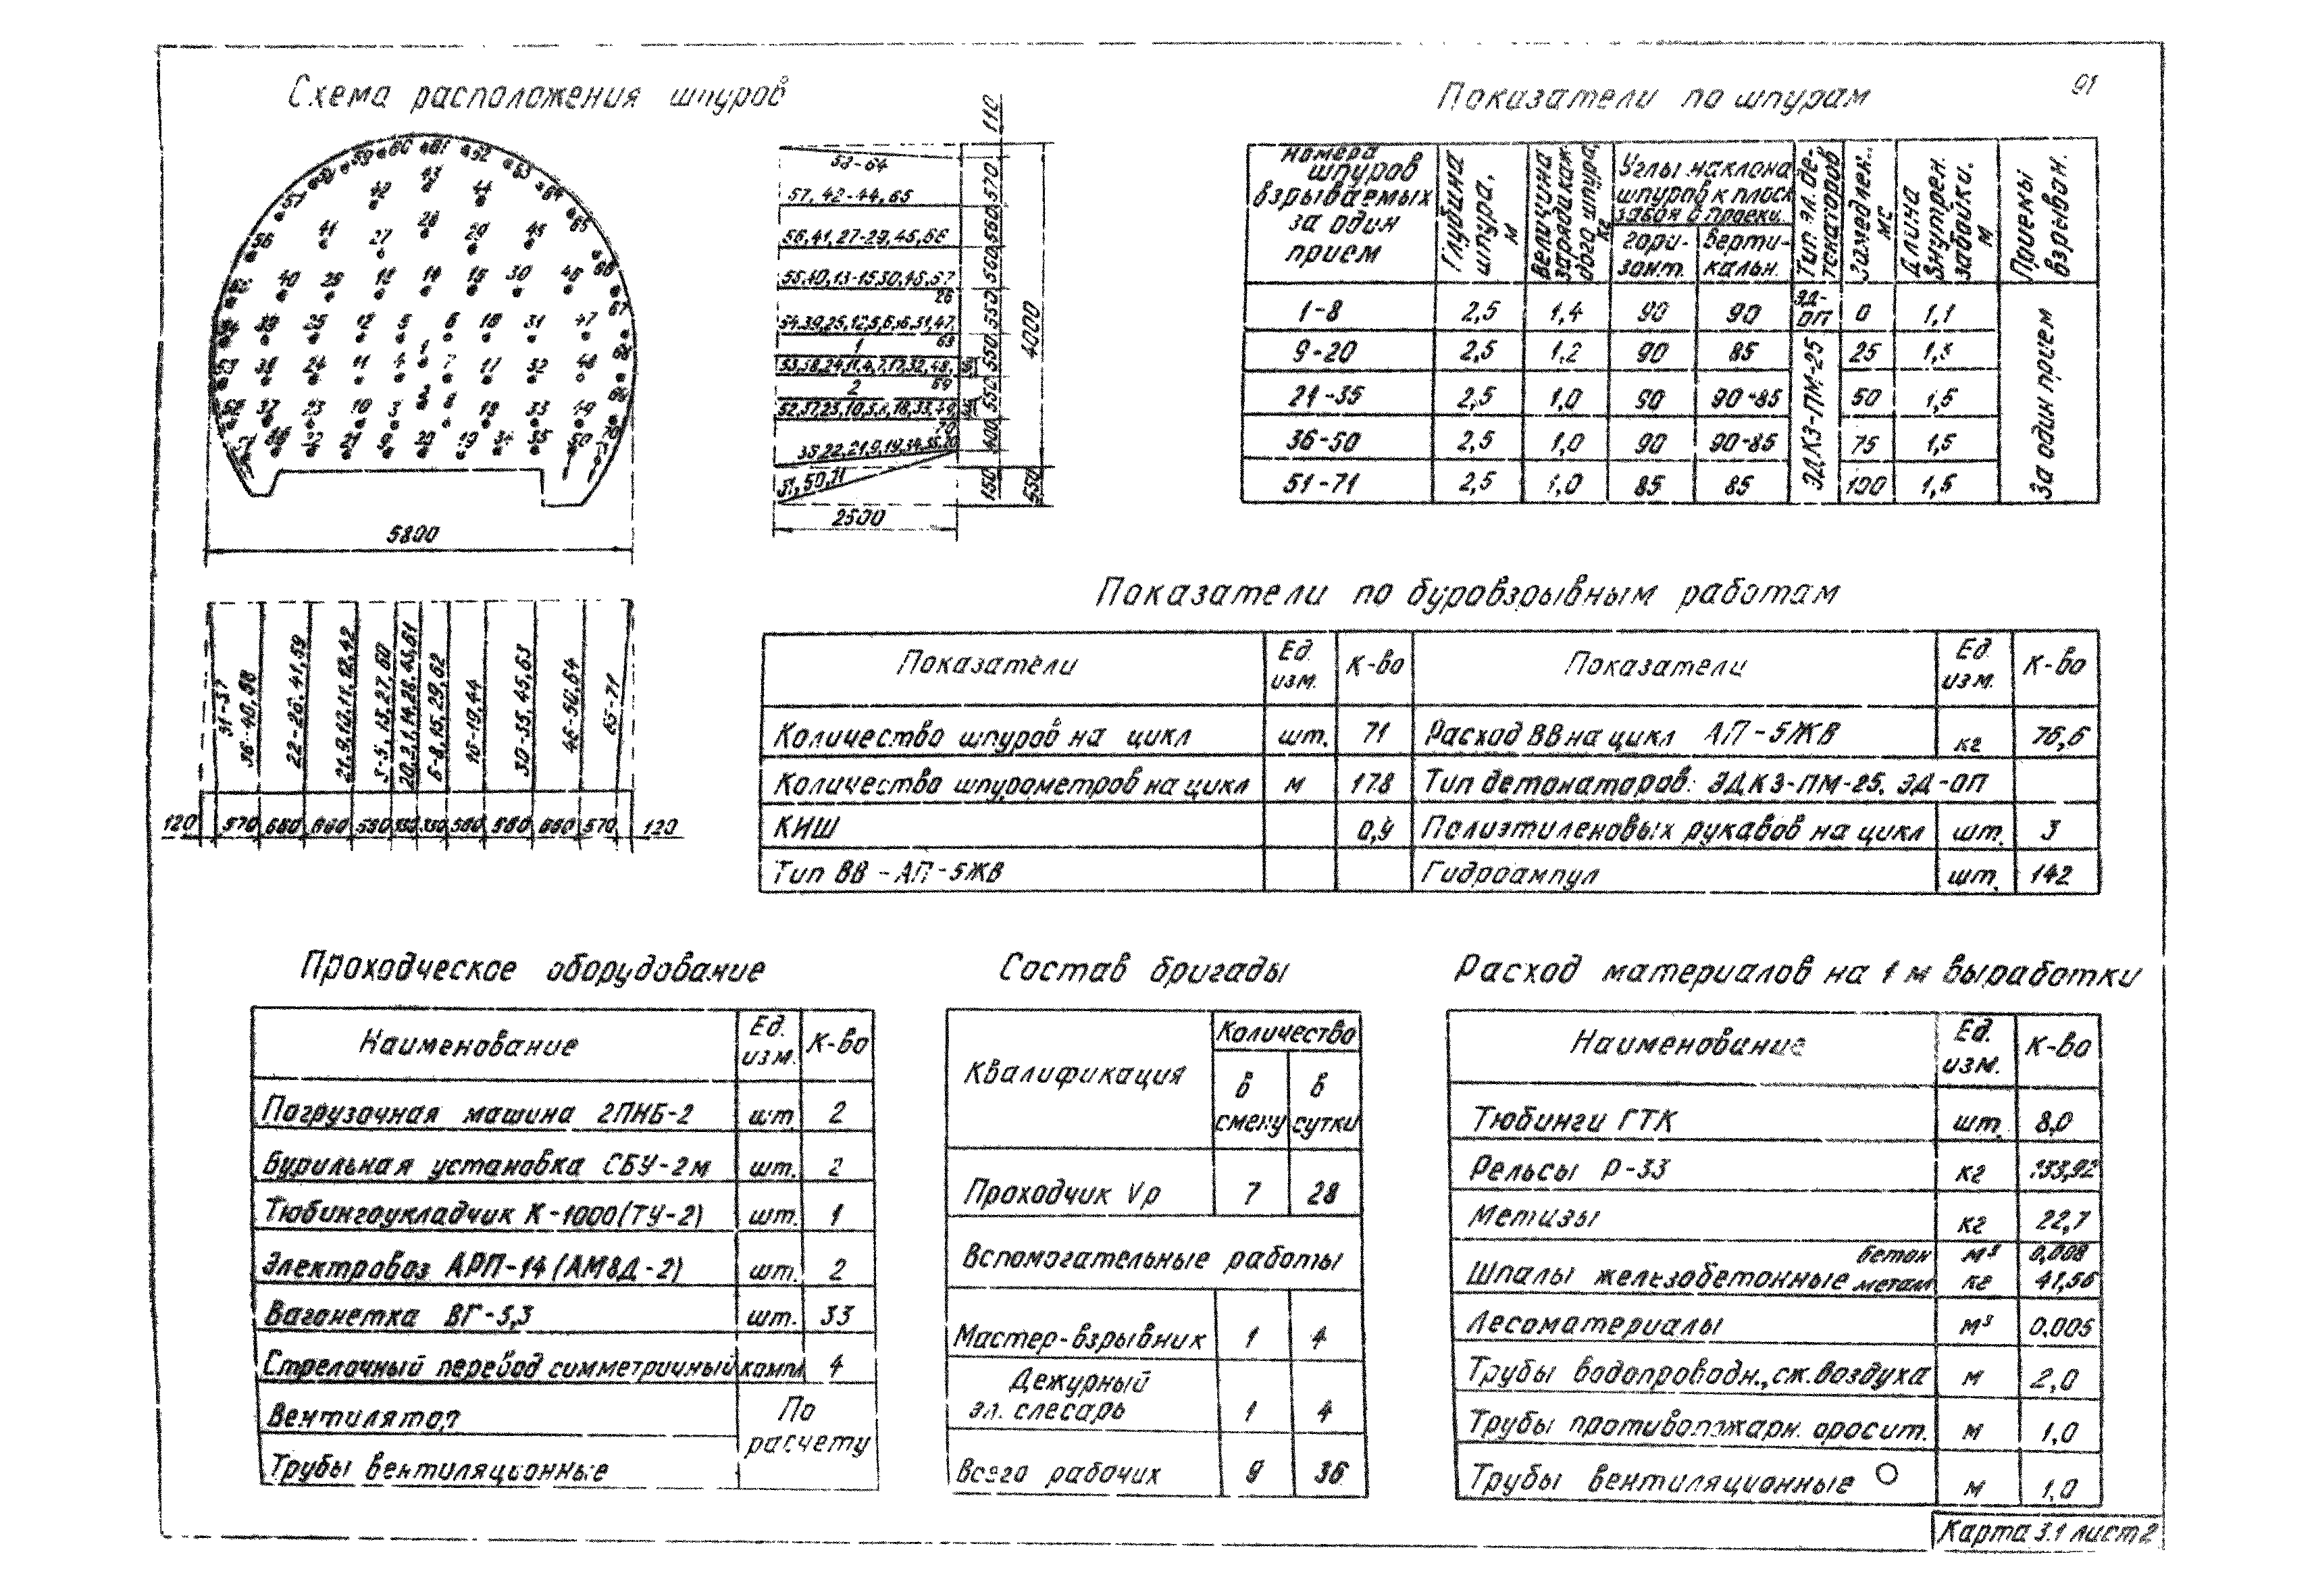 Схема расположения шпуров
Показатели по шпурам
91
5800
2500
4000
110
570
550
400
150
550
53-64
57, 42-44, 65
56,41,27-29,45,66
55,40,13-15,30,46,67
26
1
2
51,50,71
номера шпуров взрываемых за один прием
Глубина шпура, м
Величина заряда каждого шпура, кг
Углы наклона шпуров к плоск забоя в проекц.
гори-зонт.
верти-кальн.
Тип эл. де-тонаторов
Замедлен. мс
Длина внутрен. забойки, м
Приемы взрыван.
1-8 2,5 1,4 90 90 ЭД-ОП 0 1,1
9-20 2,5 1,2 90 85 25 1,5
21-35 2,5 1,0 90 90-85 50 1,5
36-50 2,5 1,0 90 90-85 75 1,5
51-71 2,5 1,0 85 85 100 1,5
ЭДКЗ-ПМ-25
За один прием
51-57
36-40,58
22-26,41,59
20,2,1,14,28,43,61
6-8,15,29,62
16-19,44
30-35,45,63
46-50,64
65-71
120 570 660 660 580 580 580 660 570 120
Показатели по буровзрывным работам
Показатели Ед. изм. К-во Показатели Ед. изм. К-во
Количество шпуров на цикл шт. 71 Расход ВВ на цикл АП-5ЖВ кг 76,6
Количество шпурометров на цикл м 178 Тип детонаторов: ЭДКЗ-ПМ-25, ЭД-ОП
КИШ 0,9 Полиэтиленовых рукавов на цикл шт. 3
Тип ВВ - АП-5ЖВ Гидроампул шт. 142
Проходческое оборудование
Наименование Ед. изм. К-во
Погрузочная машина 2ПНБ-2 шт 2
Бурильная установка СБУ-2м шт. 2
Тюбингоукладчик К-1000(ТУ-2) шт. 1
Электровоз АРП-14 (АМ8Д-2) шт. 2
Вагонетка ВГ-3,3 шт. 33
Стрелочный перевод симметричный компл 4
Вентилятор По расчету
Трубы вентиляционные
Состав бригады
Квалификация Количество
в смену в сутки
Проходчик Vр 7 28
Вспомогательные работы
Мастер-взрывник 1 4
Дежурный
эл. слесарь 1 4
Всего рабочих 9 36
Расход материалов на 1 м выработки
Наименование Ед. изм. К-во
Тюбинги ГТК шт. 8,0
Рельсы Р-33 кг 133,92
Метизы кг 22,7
Шпалы железобетонные бетон м³ 0,008
металл кг 41,56
Лесоматериалы м³ 0,005
Трубы водопроводн., сж. воздуха м 2,0
Трубы противопожарн. оросит. м 1,0
Трубы вентиляционные м 1,0
Карта 3.1 лист 2